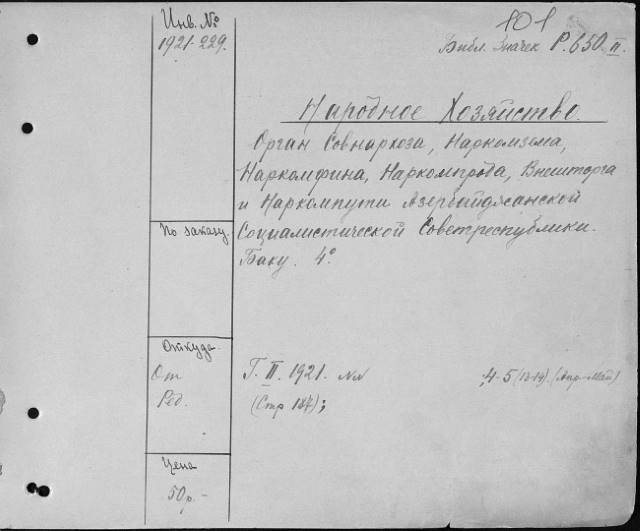 Инв. №
1921-229.
101
Библ. Значек Р.650 II.
Народное Хозяйство.
Орган Совнархоза, Наркомзема,
Наркомфина, Наркомпрода, Внешторга
и Наркомпути Азербайджанской
Социалистической Советреспублики.
Баку. 4°.
По заказу.
Откуда
От
Ред.
Г. II. 1921. №№ 4-5 (13-14). (Апр-Май)
(Стр 147);
Цена
50р.-